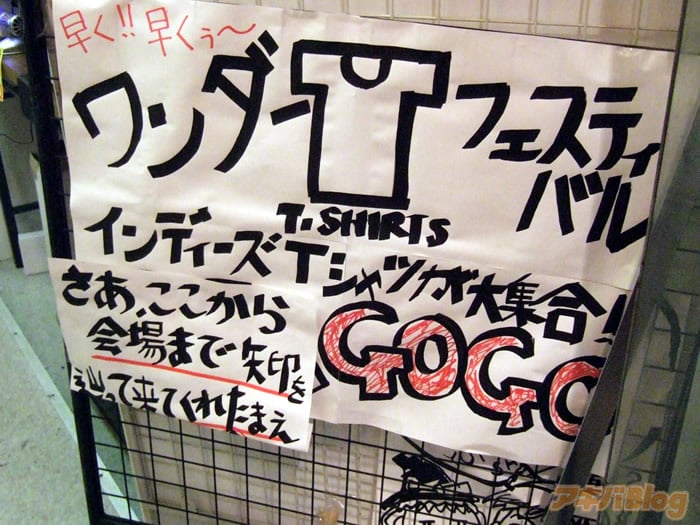 早く!!早くぅ～
ワンダー T フェスティバル
T-SHIRTS
インディーズTシャツが大集合!!
さあ、ここから
会場まで矢印を
辿って来てくれたまえ
GOGO
アキバBlog